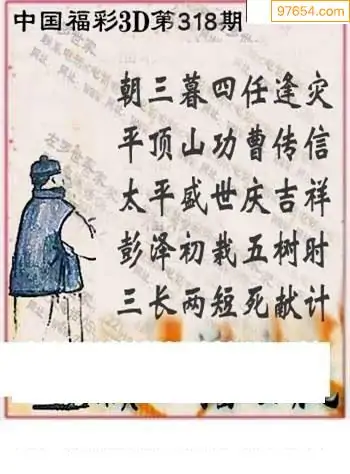 97654.com
中国福彩3D第318期
朝三暮四任逢灾
平顶山功曹传信
太平盛世庆吉祥
彭泽初栽五树时
三长两短死献计